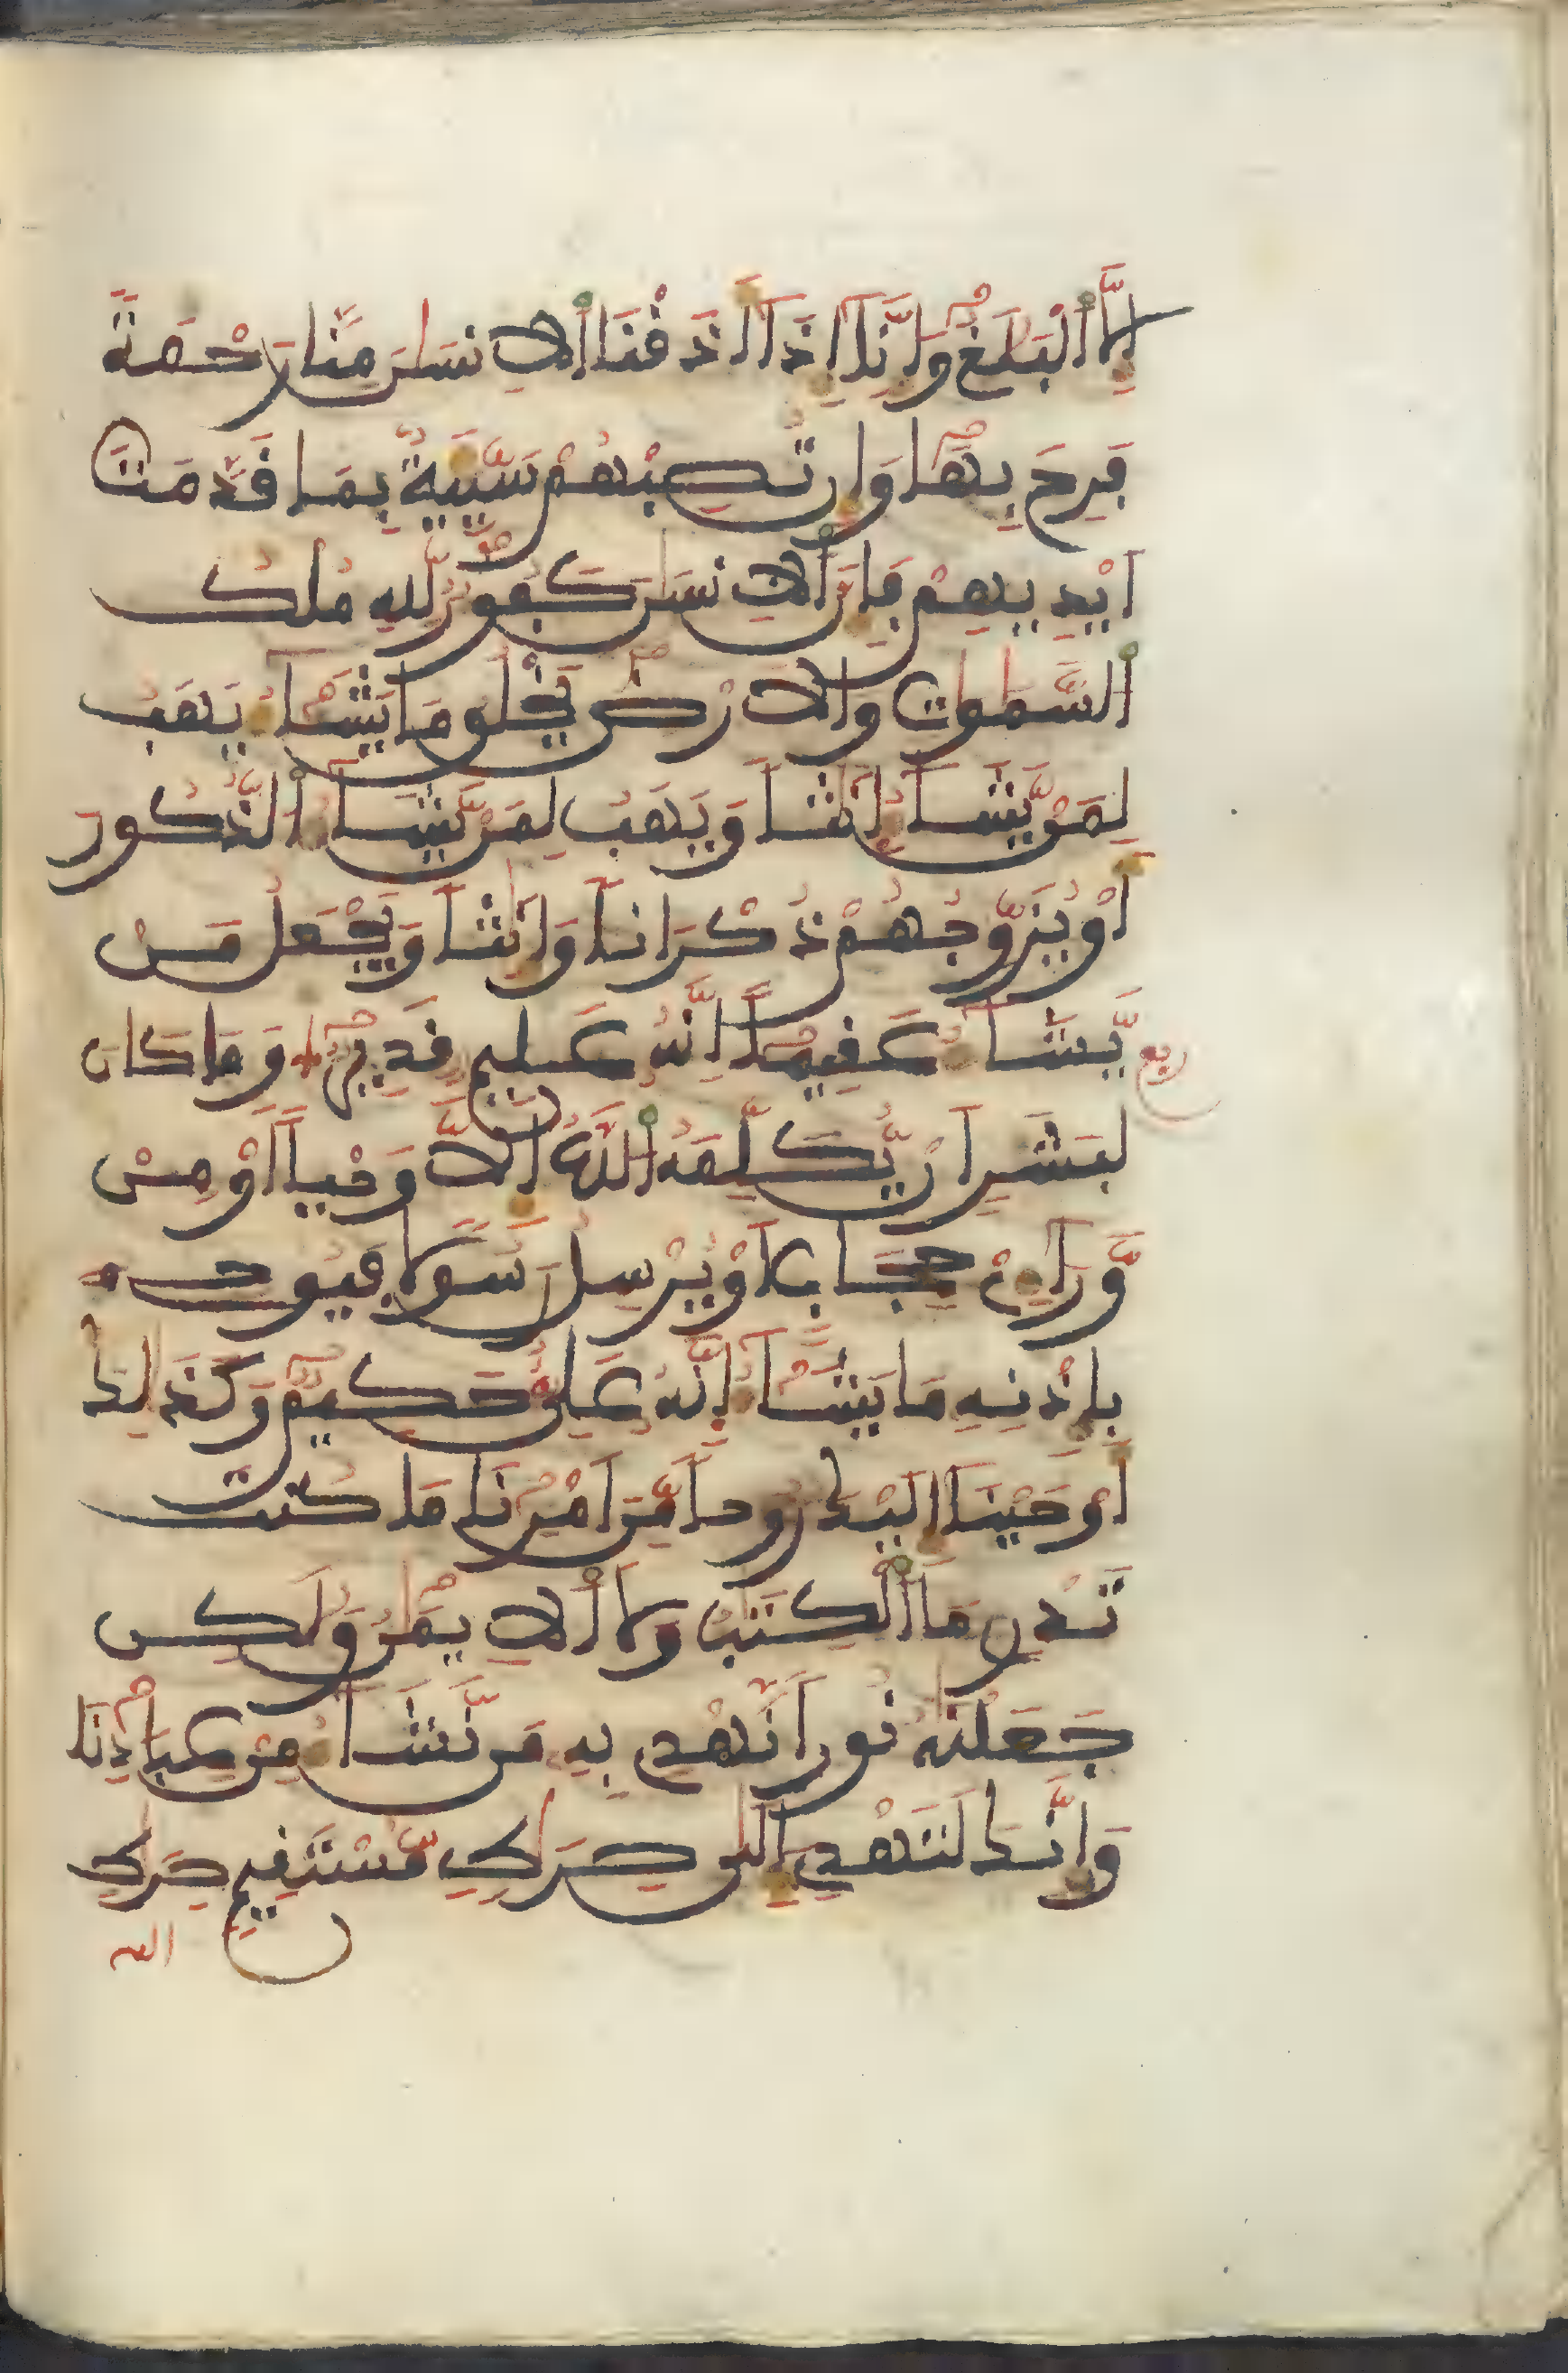 إِلَّا اَ۬لْبَلَٰغُ وَإِنَّآ إِذَآ أَذَقْنَا اَ۬لِانسَٰنَ مِنَّا رَحْمَةً
فَرِحَ بِهَا وَإِن تُصِبْهُمْ سَيِّيَةٌ بِمَا قَدَّمَتَ
اَيْدِيهِمْ فَإِنَّ اَ۬لِانسَٰنَ كَفُورٌ لِلهِ مُلْكُ
اُ۬لسَّمَٰوَٰتِ وَالَارْضِ يَخْلُقُ مَا يَشَآءُ يَهَبُ
لِمَنْ يَّشَآءُ إِنَٰثاً وَيَهَبُ لِمَنْ يَّشَآءُ اُ۬لذُّكُورَ
أَوْ يُزَوِّجُهُمْ ذُكْرَاناً وَإِنَٰثاً وَيَجْعَلُ مَنْ
يَّشَآءُ عَقِيماً اِنَّهُۥ عَلِيمٌ قَدِيرٌ وَمَا كَانَ
ربع
لِبَشَرٍ اَنْ يُّكَلِّمَهُ اُ۬للَّهُ إِلَّا وَحْياً اَوْ مِنْ
وَّرَآءِےْ حِجَابٍ اَوْ يُرْسِلُ رَسُولًا فَيُوحِے
بِإِذْنِهِۦ مَا يَشَآءُ إِنَّهُۥ عَلِيٌّ حَكِيمٌ وَكَذَٰلِكَ
أَوْحَيْنَآ إِلَيْكَ رُوحاً مِّنَ اَمْرِنَا مَا كُنتَ
تَدْرِے مَا اَ۬لْكِتَٰبُ وَلَا اَ۬لِايمَٰنُ وَلَٰكِن
جَعَلْنَٰهُ نُوراً نَّهْدِے بِهِۦ مَن نَّشَآءُ مِنْ عِبَادِنَا
وَإِنَّكَ لَتَهْدِے إِلَىٰ صِرَٰطٍ مُّسْتَقِيمٍ صِرَٰطِ
الله